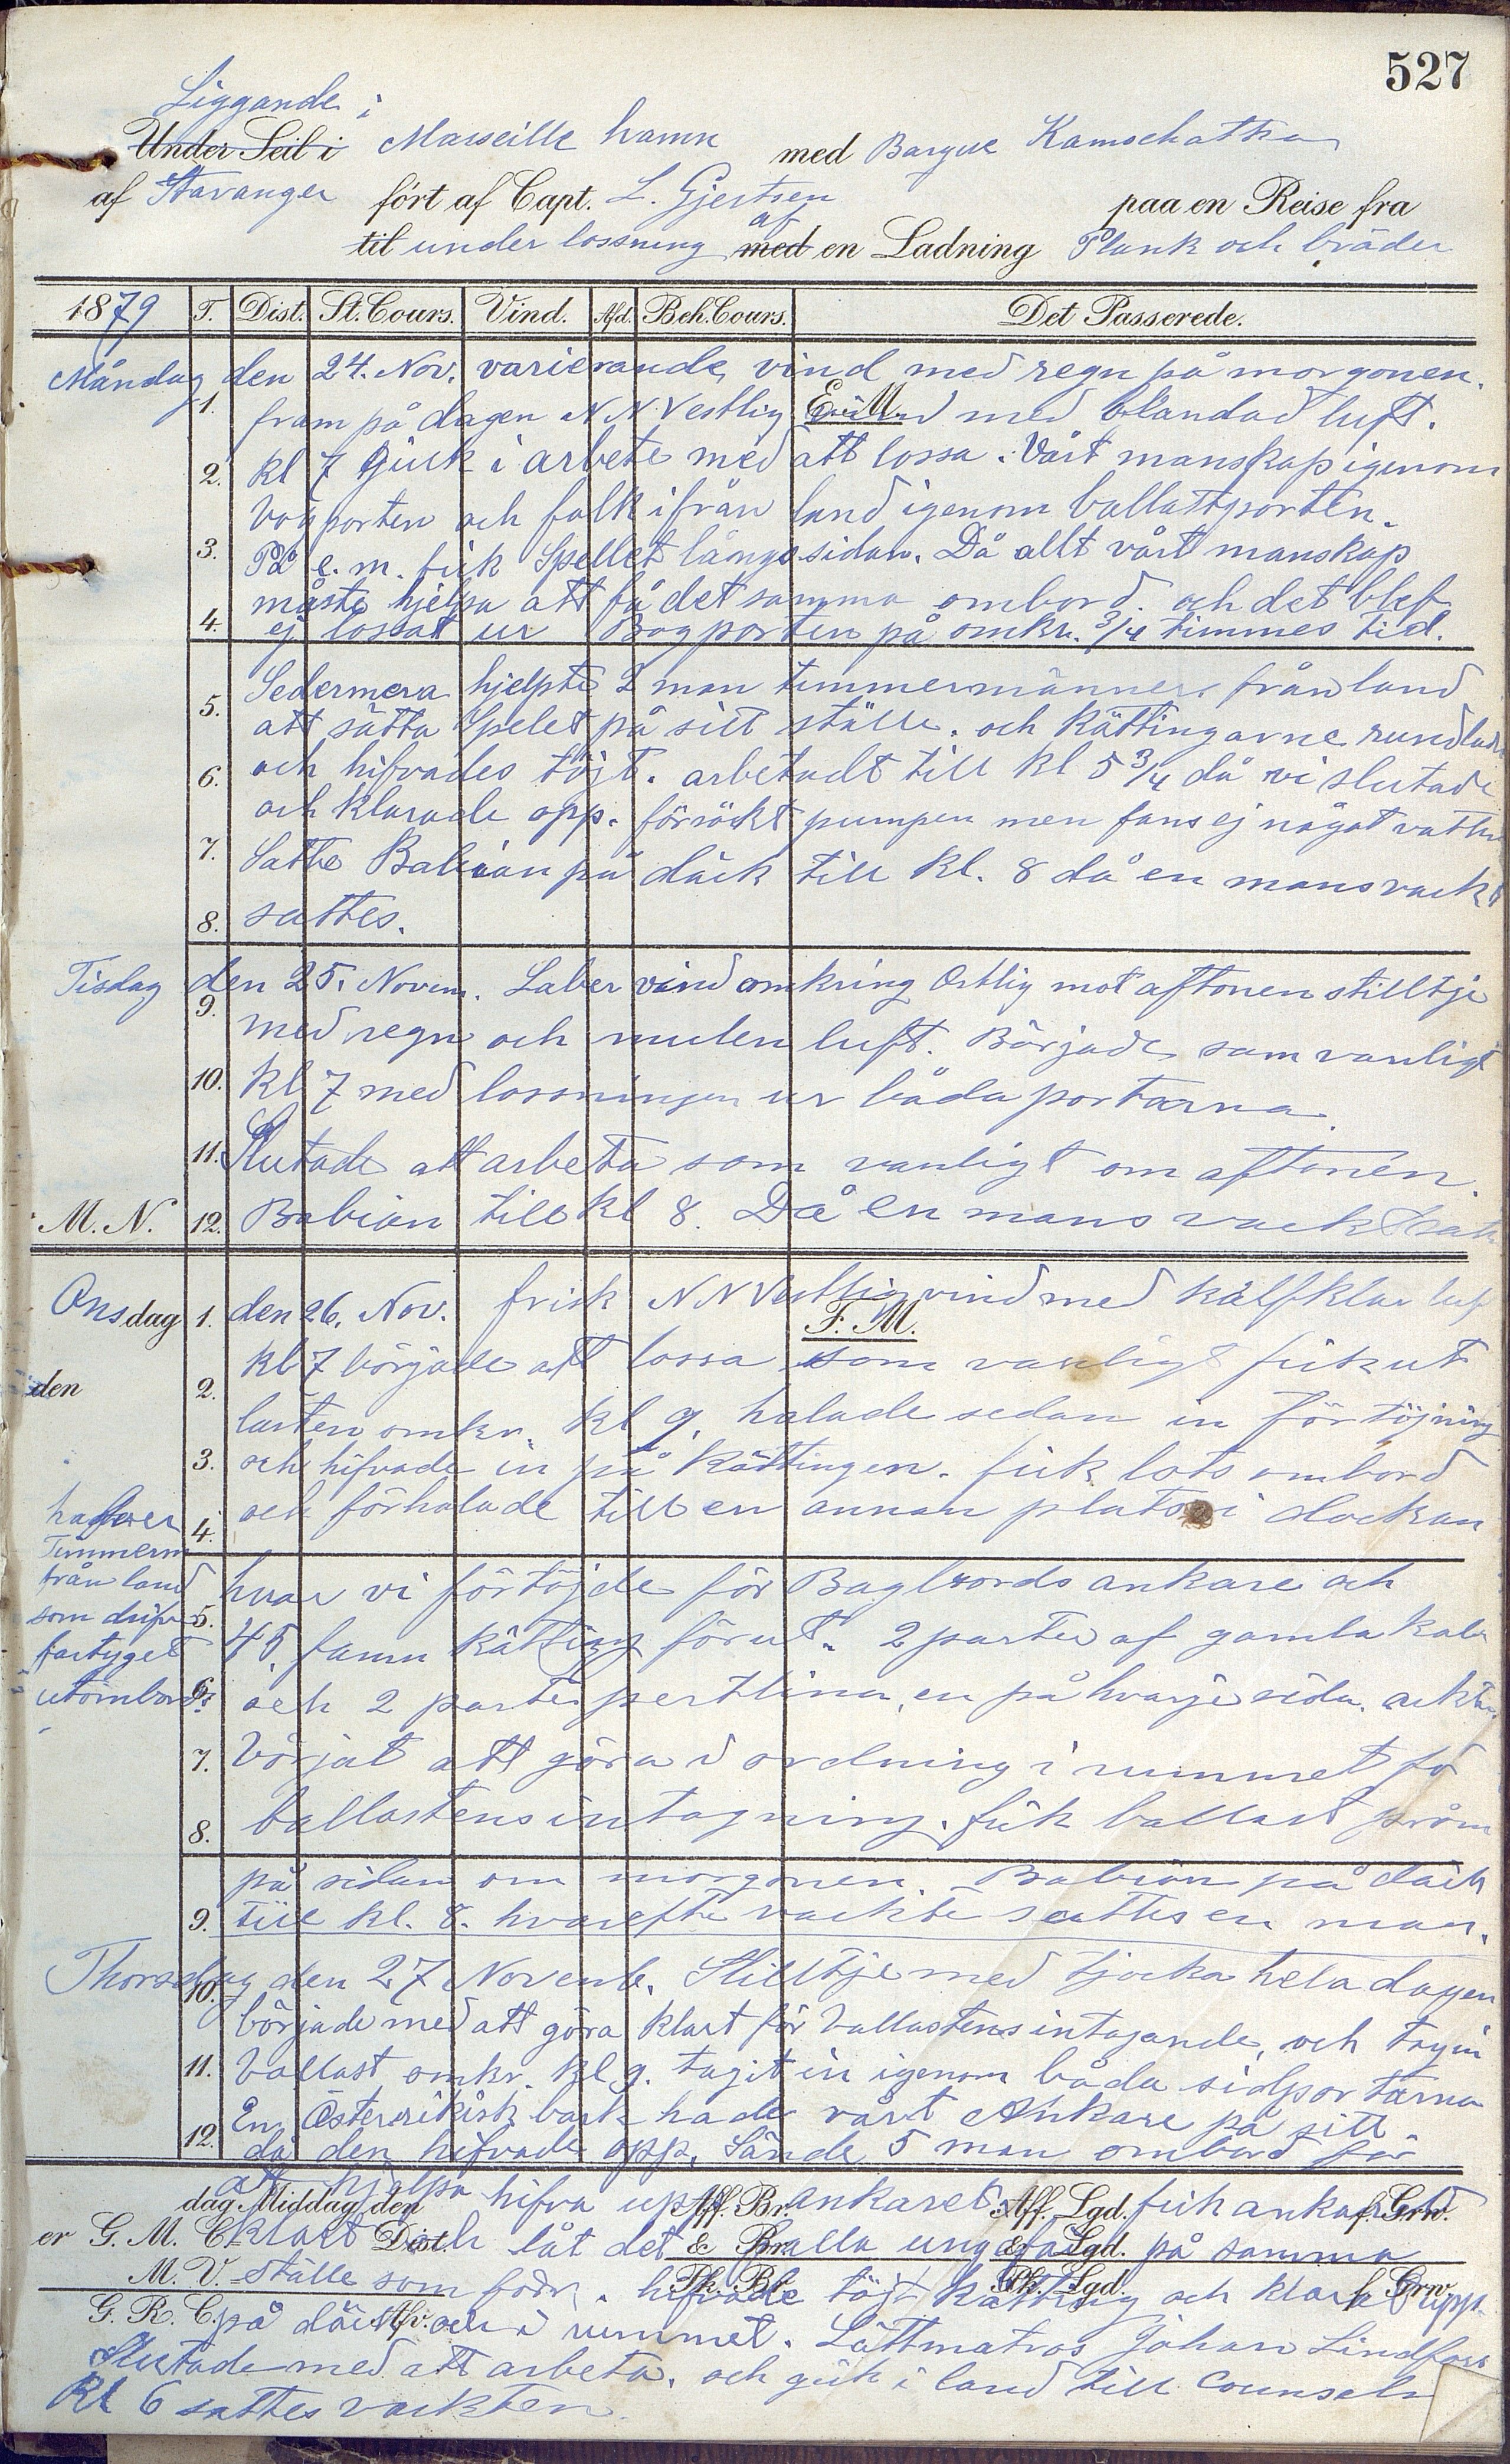 527
Liggande i
Under Seil i Marseille hamn med Barque Kamschatka
af Stavanger fört af Capt. L. Gjertsen paa en Reise fra
til under lossning af med en Ladning Plank och bräder
1879 T. Dist. St. Cours. Vind. Afd. Beh. Cours. Det Passerede.
Måndag den 24. Nov. varierande vind med regn på morgonen.
1. fram på dagen N N Vestlig vind med blandad luft.
E. M.
2. kl 7 Gick i arbete med att lossa. Vårt manskap igenom
bogporten och folk ifrån land igenom ballastporten.
3. På e. m. fick Spellet långssidan. Då allt vårt manskap
måste hjelpa att få det samma ombord. och det blef
4. ej lossat ur Bogporten på omkr. 3/4 timmes tid.
Sedermera hjelpte 2 man timmermänner från land
5. att sätta Spelet på sitt ställe. och Kättingarne rundlades
6. och hifvades töjt. arbetadt till kl 5 3/4 då vi slutade
och klarade opp. försökt pumpen men fans ej något vatten
7. Satte Babian på däck till kl. 8 då en mans vackt
8. sattes.
Tisdag den 25. Novem. Laber vind omkring Ostlig mot aftonen stilltje
9. med regn och mulen luft. Började som vanligt
10. kl 7 med lossningen ur båda portarna.
11. Slutade att arbeta som vanligt om aftonen.
M. N. 12. Babian till kl 8. Då en mans vackt
Onsdag 1. den 26. Nov. frisk N N Vestlig vind med halfklar luft
F. M.
kl 7 började att lossa som vanligt fick ut
den 2.
lasten omkr. kl 9. halade sedan in förtöjning
3. och hifvade in på Kättingen. fick lots ombord
4. och förhalade till en annan plats i dockan
hafver
Timmerm
från land
som drifva
fartyget
utombords
hvar vi förtöjde för Bagbords ankare och
5. 45 famn kätting förut. 2 parter af gamla kabe
6. och 2 parter pertlina, en på hvarje sida. ackter
7. börjat att göra i ordning i rummet för
8. ballastens intagning. fick ballast pråm
på sidan om morgonen. Babian på däck
9. till kl. 8. hvarefter vackte sattes en man.
Thorsdag den 27 Novemb. Stilltje med tjocka hela dagen
10. började med att göra klart för ballastens intagande, och tog in
11. ballast omkr. kl 9. tagit in igenom båda sidportarna
En Österrikisk bark hade vårt Ankare på sitt
12. då den hifvade opp. Sände 5 man ombord för
att hjelpa hifva upp ankaret. fick ankaret
dag Middag den Aff. Br. Aff. Lgd. f. Grw.
klart och låt det falla ungefär på samma
er G. M. C. Dist. & Br. & Lgd.
ställe som förr. hifvade töjt kätting och klarat upp
M. V. Pk. Br. Pk. Lgd. f. Grw.
på däck och i rummet. Lättmatros Johan Lindfors
G. R. C. Afv.
Slutade med att arbeta. och gick i land till Counseln
Kl 6 sattes vackten.